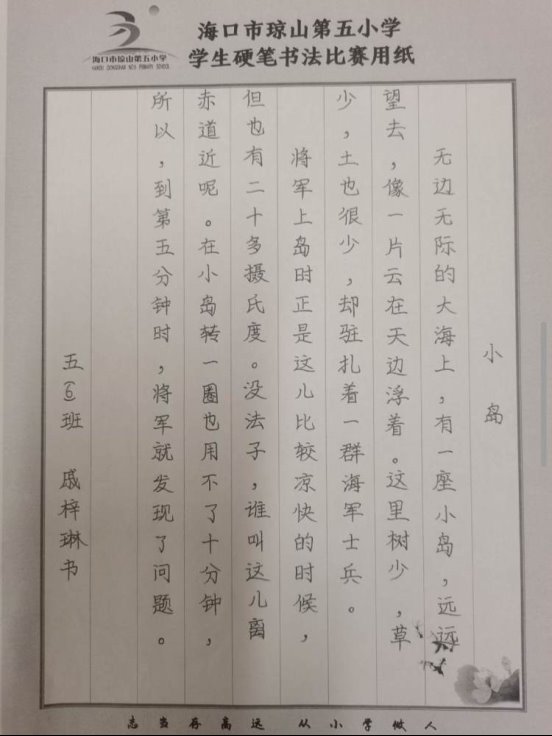 海口市琼山第五小学
HAIKOU QIONGSHAN NO.5 PRIMARY SCHOOL
海口市琼山第五小学
学生硬笔书法比赛用纸
小岛
无边无际的大海上,有一座小岛,远远
望去,像一片云在天边浮着。这里树少,草
少,土也很少,却驻扎着一群海军士兵。
将军上岛时正是这儿比较凉快的时候,
但也有二十多摄氏度。没法子,谁叫这儿离
赤道近呢。在小岛转一圈也用不了十分钟,
所以,到第五分钟时,将军就发现了问题。
五⑥班 戚梓琳书
志当存高远 从小学做人